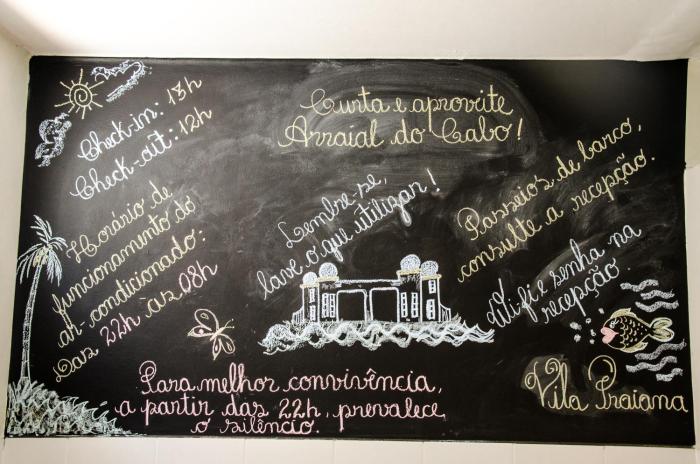 Check-in: 13h
Check-out: 12h
Curta e aproveite
Arraial do Cabo!
Horário de
funcionamento do
ar-condicionado:
Das 22h às 08h
Lembre-se,
lave o que utilizar!
Passeios de barco,
consulte a recepção.
Wi-fi e senha na
recepção.
Para melhor convivência,
a partir das 22h, prevalece
o silêncio.
Vila Praiana